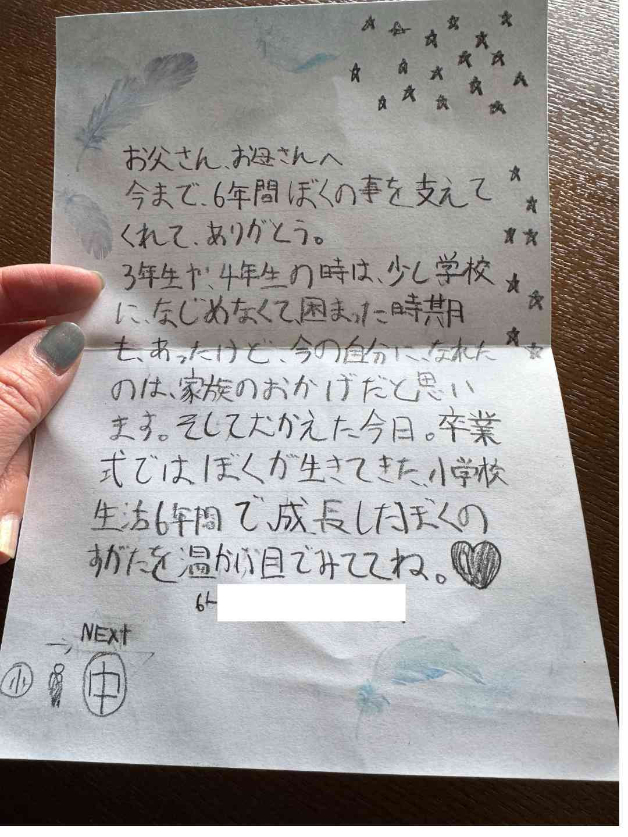 お父さん、お母さんへ
今まで、6年間ぼくの事を支えて
くれて、ありがとう。
3年生や、4年生の時は、少し学校
に、なじめなくて困まった時期
も、あったけど、今の自分に、なれた
のは、家族のおかげだと思い
ます。そしてむかえた今日。卒業
式では、ぼくが生きてきた、小学校
生活6年間で、成長したぼくの
すがたを温かい目でみててね。
NEXT
小 → 中